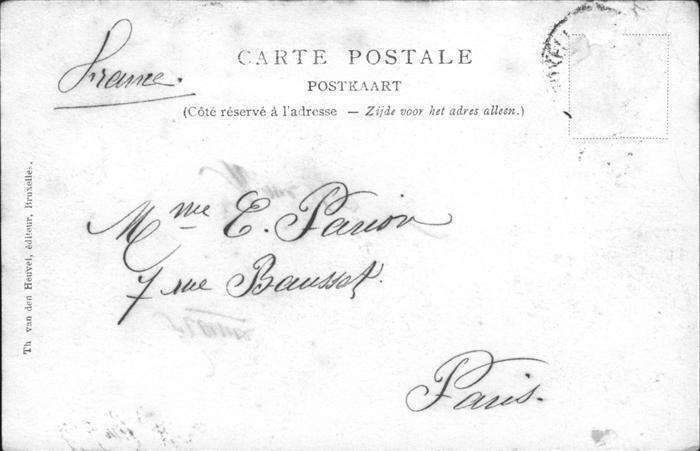 CARTE POSTALE
France.
POSTKAART
(Côté réservé à l'adresse — Zijde voor het adres alleen.)
Mme E. Parion
7 rue Bausset.
Paris.
Th. van den Heuvel, éditeur, Bruxelles.